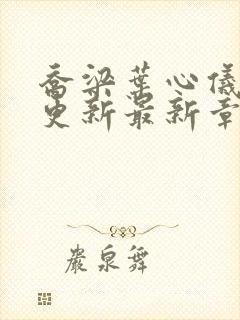 乔梁叶心仪
更新最新章
巖泉舞